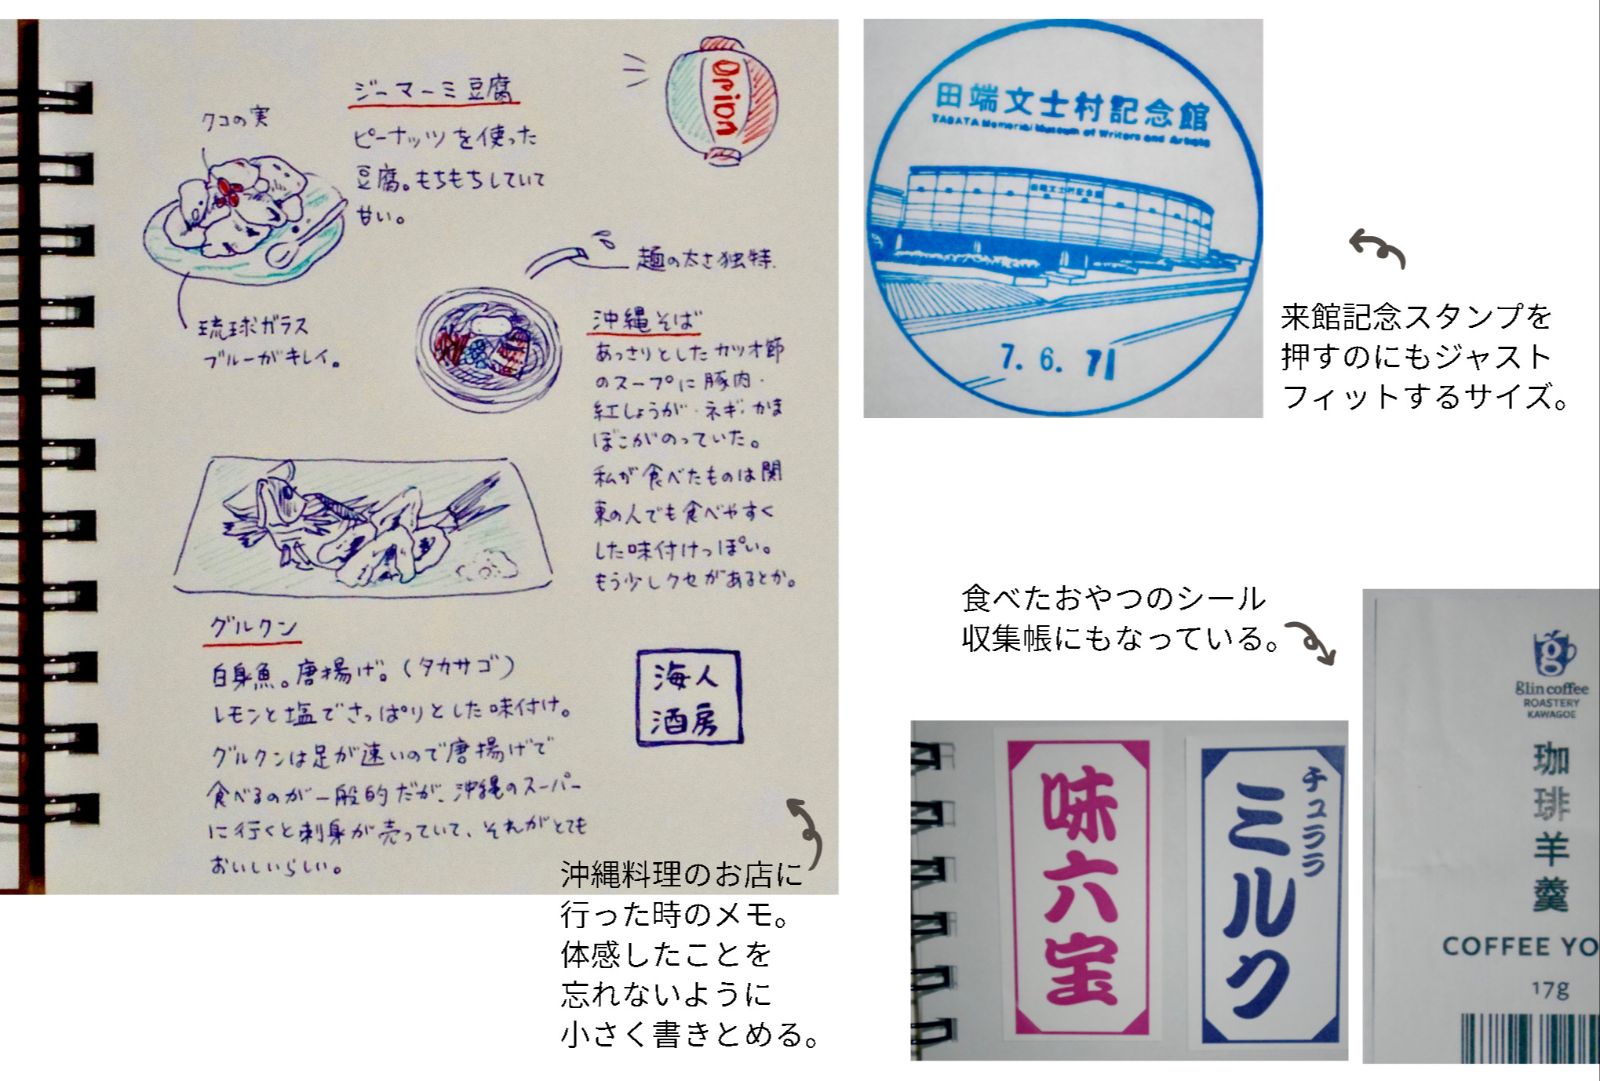 クコの実
ジーマーミ豆腐
ピーナッツを使った
豆腐。もちもちしていて
甘い。
Orion
琉球ガラス
ブルーがキレイ。
麺の太さ独特.
沖縄そば
あっさりとしたカツオ節
のスープに豚肉・
紅しょうが・ネギ・かま
ぼこがのっていた。
私が食べたものは関
東の人でも食べやすく
した味付けっぽい。
もう少しクセがあるとか。
グルクン
白身魚。唐揚げ。(タカサゴ)
レモンと塩でさっぱりとした味付け。
グルクンは足が速いので唐揚げで
食べるのが一般的だが、沖縄のスーパー
に行くと刺身が売っていて、それがとても
おいしいらしい。
海人
酒房
沖縄料理のお店に
行った時のメモ。
体感したことを
忘れないように
小さく書きとめる。
田端文士村記念館
TABATA Memorial Museum of Writers and Artists
田端文士村記念館
7. 6. 71
来館記念スタンプを
押すのにもジャスト
フィットするサイズ。
食べたおやつのシール
収集帳にもなっている。
味六宝
チュララ
ミルク
g
glin coffee
ROASTERY
KAWAGOE
珈琲羊羹
COFFEE YO
17g